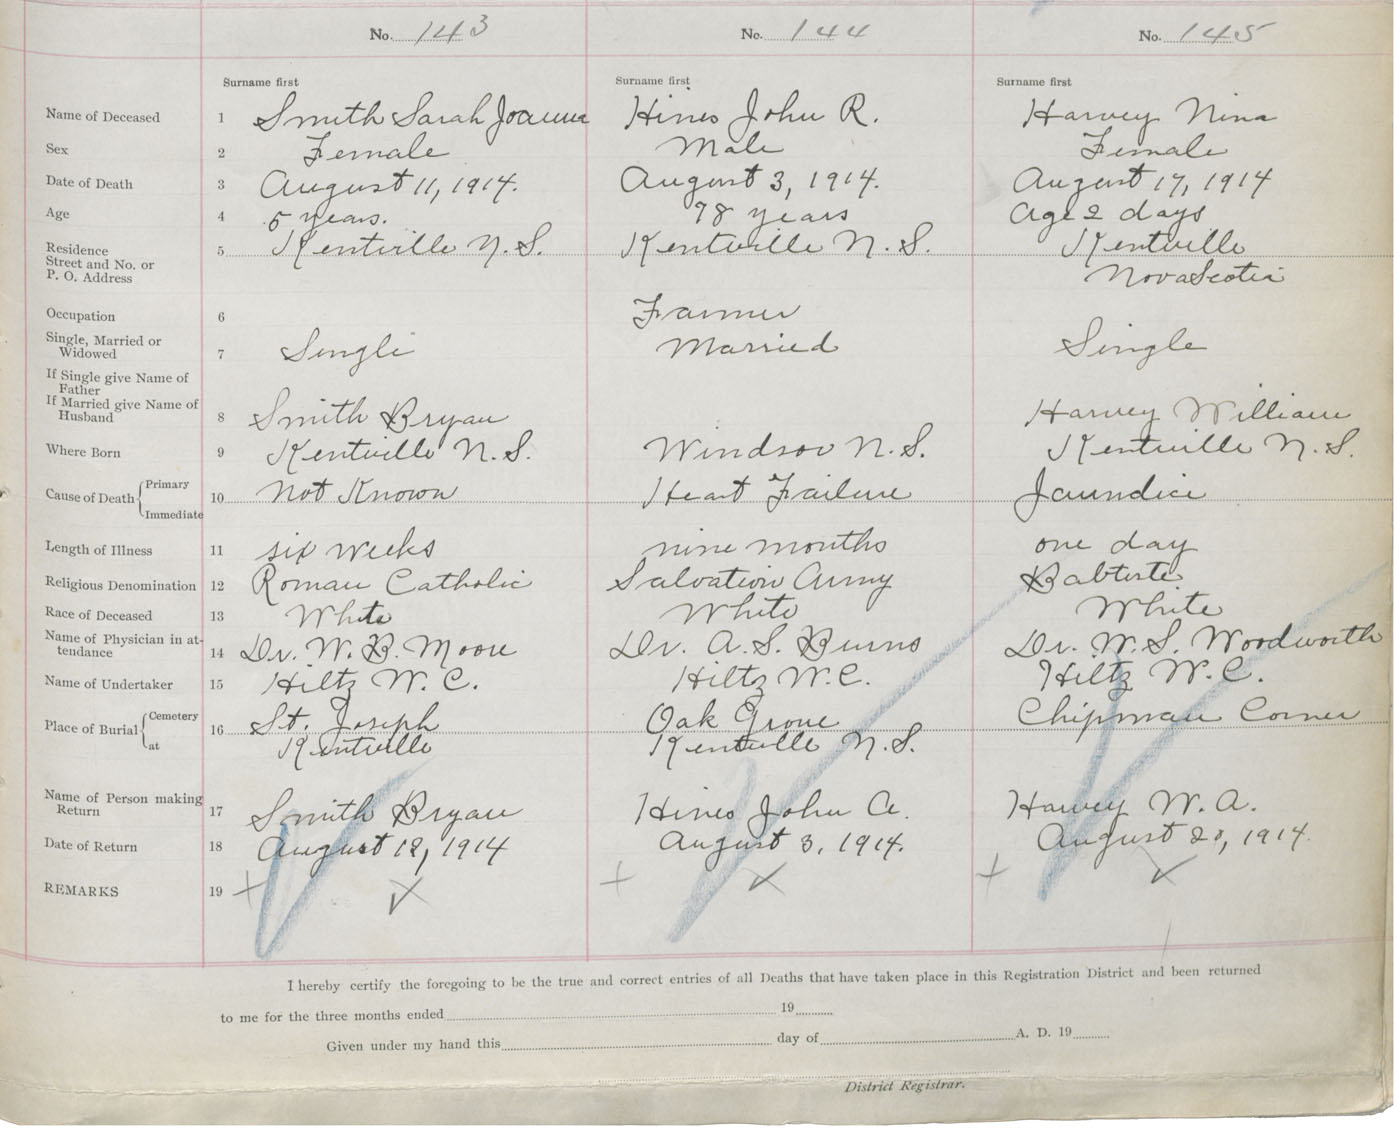 No. 143 No. 144 No. 145
Surname first Surname first Surname first
Name of Deceased 1 Smith Sarah Joanna Hines John R. Harvey Nina
Sex 2 Female Male Female
Date of Death 3 August 11, 1914. August 3, 1914. August 17, 1914
Age 4 5 years. 78 years Age 2 days
Residence Street and No. or P. O. Address 5 Kentville N.S. Kentville N.S. Kentville
Nova Scotia
Occupation 6 Farmer
Single, Married or Widowed 7 Single Married Single
If Single give Name of Father
If Married give Name of Husband 8 Smith Bryan Harvey William
Where Born 9 Kentville N.S. Windsor N.S. Kentville N.S.
Cause of Death Primary Immediate 10 not Known Heart Failure Jaundice
Length of Illness 11 six weeks nine months one day
Religious Denomination 12 Roman Catholic Salvation Army Babtiste
Race of Deceased 13 White White White
Name of Physician in attendance 14 Dr. W. B. Moore Dr. A. S. Burns Dr. W. S. Woodworth
Name of Undertaker 15 Hiltz W. C. Hiltz W.C. Hiltz W. C.
Place of Burial Cemetery at 16 St. Joseph Oak Grove Chipman Corner
Kentville Kentville N.S.
Name of Person making Return 17 Smith Bryan Hines John A. Harvey W. A.
Date of Return 18 August 12, 1914 August 3, 1914. August 20, 1914.
REMARKS 19
I hereby certify the foregoing to be the true and correct entries of all Deaths that have taken place in this Registration District and been returned
to me for the three months ended 19
Given under my hand this day of A. D. 19
District Registrar.